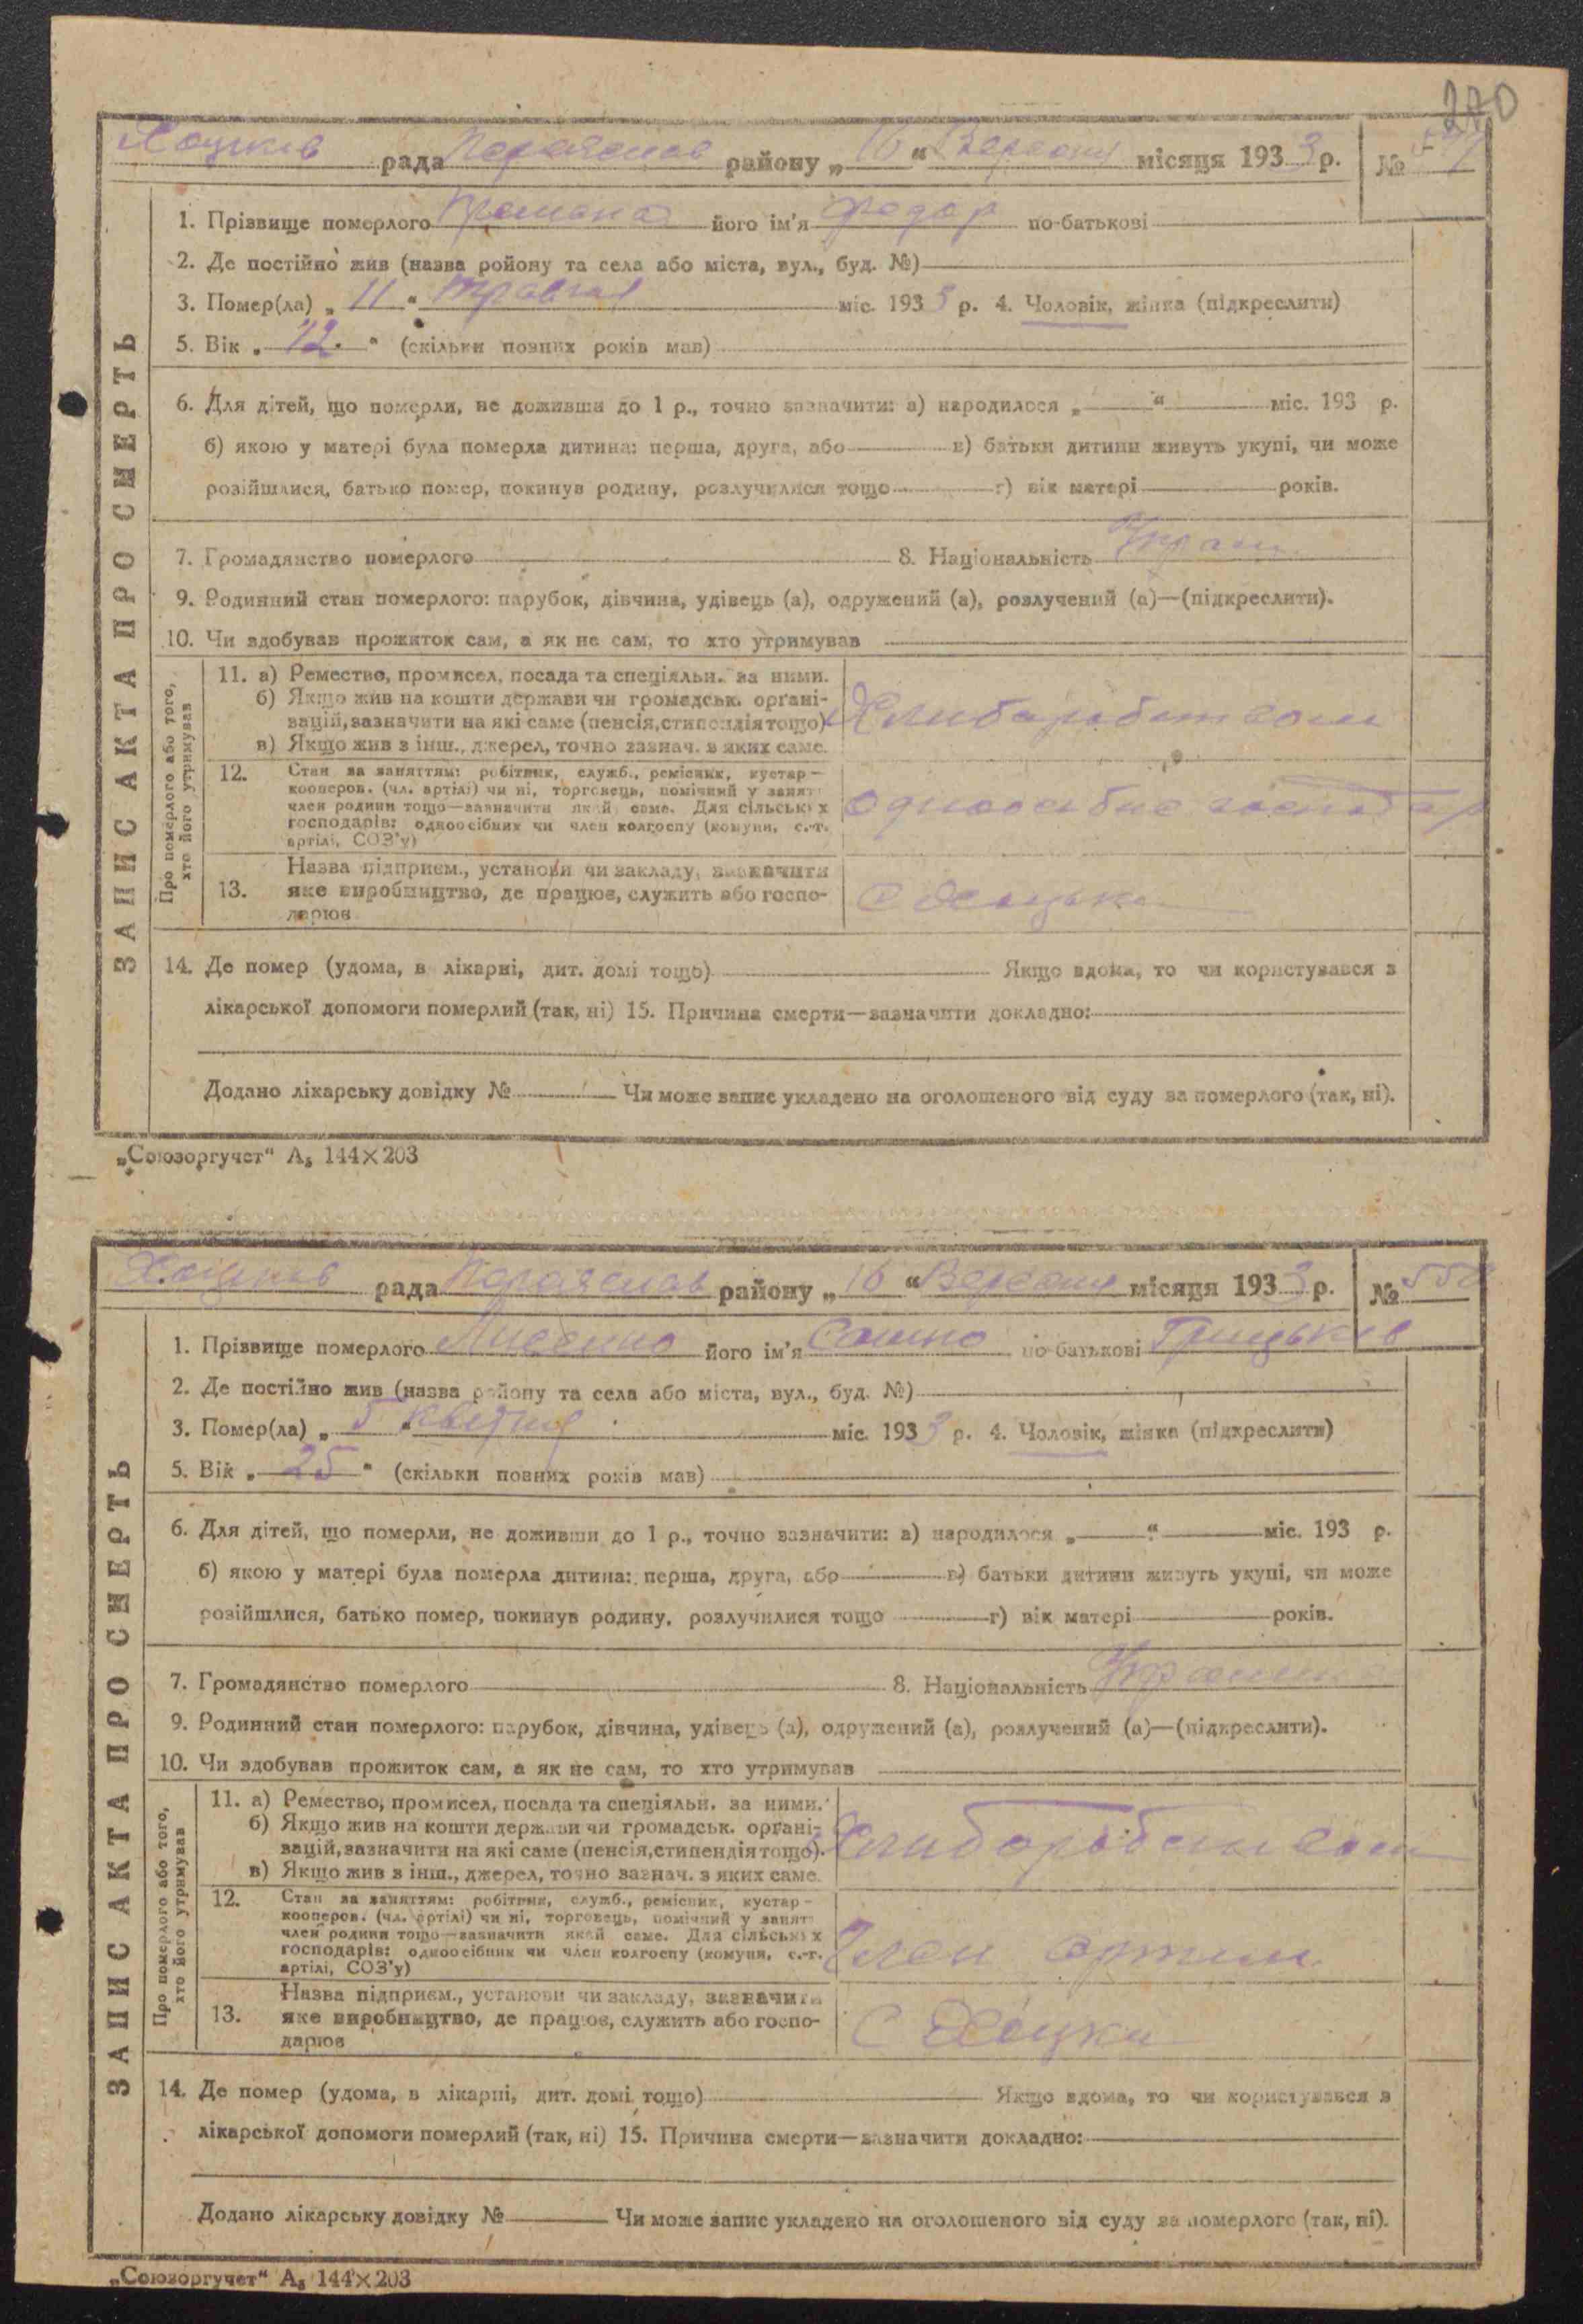 270
Хоцьків рада Переяслав району „16“ Вересня місяця 1933 р. №
1. Прізвище померлого його ім'я Федор по-батькові
2. Де постійно жив (назва ройону та села або міста, вул., буд. №)
3. Помер(ла) „11“ травня міс. 1933 р. 4. Чоловік, жінка (підкреслити)
5. Вік „42.“ (скільки повних років мав)
6. Для дітей, що померли, не доживши до 1 р., точно зазначити: а) народилося „ “ міс. 193 р.
б) якою у матері була померла дитина: перша, друга, або в) батьки дитини живуть укупі, чи може
розійшлися, батько помер, покинув родину, розлучилися тощо г) вік матері років.
7. Громадянство померлого 8. Національність
9. Родинний стан померлого: парубок, дівчина, удівець (а), одружений (а), розлучений (а)—(підкреслити).
10. Чи здобував прожиток сам, а як не сам, то хто утримував
ЗАПИС АКТА ПРО СМЕРТЬ
Про померлого або того,
хто його утримував
11. а) Ремество, промисел, посада та спеціяльн. за ними.
б) Якщо жив на кошти держави чи громадськ. орґані-
зацій, зазначити на які саме (пенсія, стипендія тощо)
в) Якщо жив з інш., джерел, точно зазнач. з яких саме.
Хлиборобством
12. Стан за заняттям: робітник, служб., ремісник, кустар—
кооперов. (чл. артілі) чи ні, торговець, помічний у занят
член родини тощо—зазначити який саме. Для сільських
господарів: одноосібник чи член колгоспу (комуни, с.-г.
артілі, СОЗ'у)
одноосібне господар
13. Назва підприєм., установи чи закладу, зазначити
яке виробництво, де працює, служить або госпо-
дарює
с Хоцьки
14. Де помер (удома, в лікарні, дит. домі тощо) Якщо вдома, то чи користувався з
лікарської допомоги померлий (так, ні) 15. Причина смерти—зазначити докладно:
Додано лікарську довідку № Чи може запис укладено на оголошеного від суду за померлого (так, ні).
„Союзоргучет“ А₅ 144×203
Хоцьків рада Переяслав району „16“ Вересня місяця 1933 р. № 558
1. Прізвище померлого його ім'я по-батькові Грицьків
2. Де постійно жив (назва ройону та села або міста, вул., буд. №)
3. Помер(ла) „5“ квітня міс. 1933 р. 4. Чоловік, жінка (підкреслити)
5. Вік „25“ (скільки повних років мав)
6. Для дітей, що померли, не доживши до 1 р., точно зазначити: а) народилося „ “ міс. 193 р.
б) якою у матері була померла дитина: перша, друга, або в) батьки дитини живуть укупі, чи може
розійшлися, батько помер, покинув родину, розлучилися тощо г) вік матері років.
7. Громадянство померлого 8. Національність
9. Родинний стан померлого: парубок, дівчина, удівець (а), одружений (а), розлучений (а)—(підкреслити).
10. Чи здобував прожиток сам, а як не сам, то хто утримував
ЗАПИС АКТА ПРО СМЕРТЬ
Про померлого або того,
хто його утримував
11. а) Ремество, промисел, посада та спеціяльн. за ними.
б) Якщо жив на кошти держави чи громадськ. орґані-
зацій, зазначити на які саме (пенсія, стипендія тощо).
в) Якщо жив з інш., джерел, точно зазнач. з яких саме.
Хлиборобством
12. Стан за заняттям: робітник, служб., ремісник, кустар—
кооперов. (чл. артілі) чи ні, торговець, помічний у занят
член родини тощо—зазначити який саме. Для сільських
господарів: одноосібник чи член колгоспу (комуни, с.-г.
артілі, СОЗ'у)
Член артили
13. Назва підприєм., установи чи закладу, зазначити
яке виробництво, де працює, служить або госпо-
дарює
С Хоцки
14. Де помер (удома, в лікарні, дит. домі тощо) Якщо вдома, то чи користувався з
лікарської допомоги померлий (так, ні) 15. Причина смерти—зазначити докладно:
Додано лікарську довідку № Чи може запис укладено на оголошеного від суду за померлого (так, ні).
„Союзоргучет“ А₅ 144×203